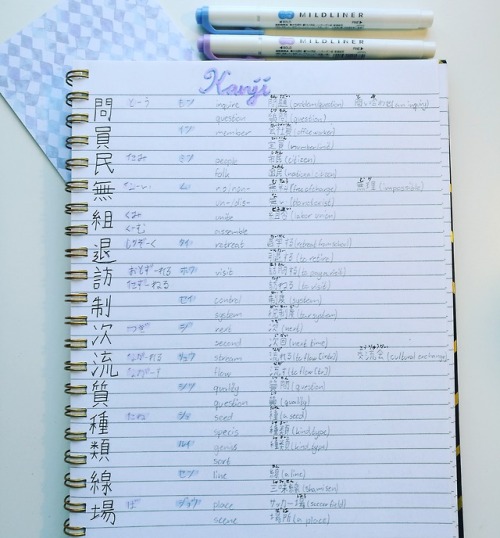 MILDLINER
MILDLINER
Kanji
問 と-う モン inquire 問題 (problem/question)
question 質問 (question)
員 イン member 会社員 (office worker)
民 たみ ミン people
folk
無 な-い ム
無理 (impossible)
組 くみ unite (labor union)
く-む assemble
退 しりぞ-く タイ retreat 退学する (retreat from school)
(to retire)
訪 おとず-れる ホウ visit 訪問する (to pay a visit)
たず-ねる 訪ねる (to visit)
制 セイ control 制度 (system)
system
次 つぎ ジ next 次 (next)
second 次回 (next time)
流 なが-れる リュウ stream 流れる (to flow [intr.]) 交流会 (cultural exchange)
なが-す flow 流す (to flow [tr.])
質 シツ quality 質問 (question)
question 質 (quality)
種 たね シュ seed 種 (a seed)
species 種類 (kind, type)
類 ルイ genus 種類 (kind, type)
sort
線 セン line 線 (a line)
三味線 (shamisen)
場 ば ジョウ place サッカー場 (soccer field)
scene 場所 (a place)